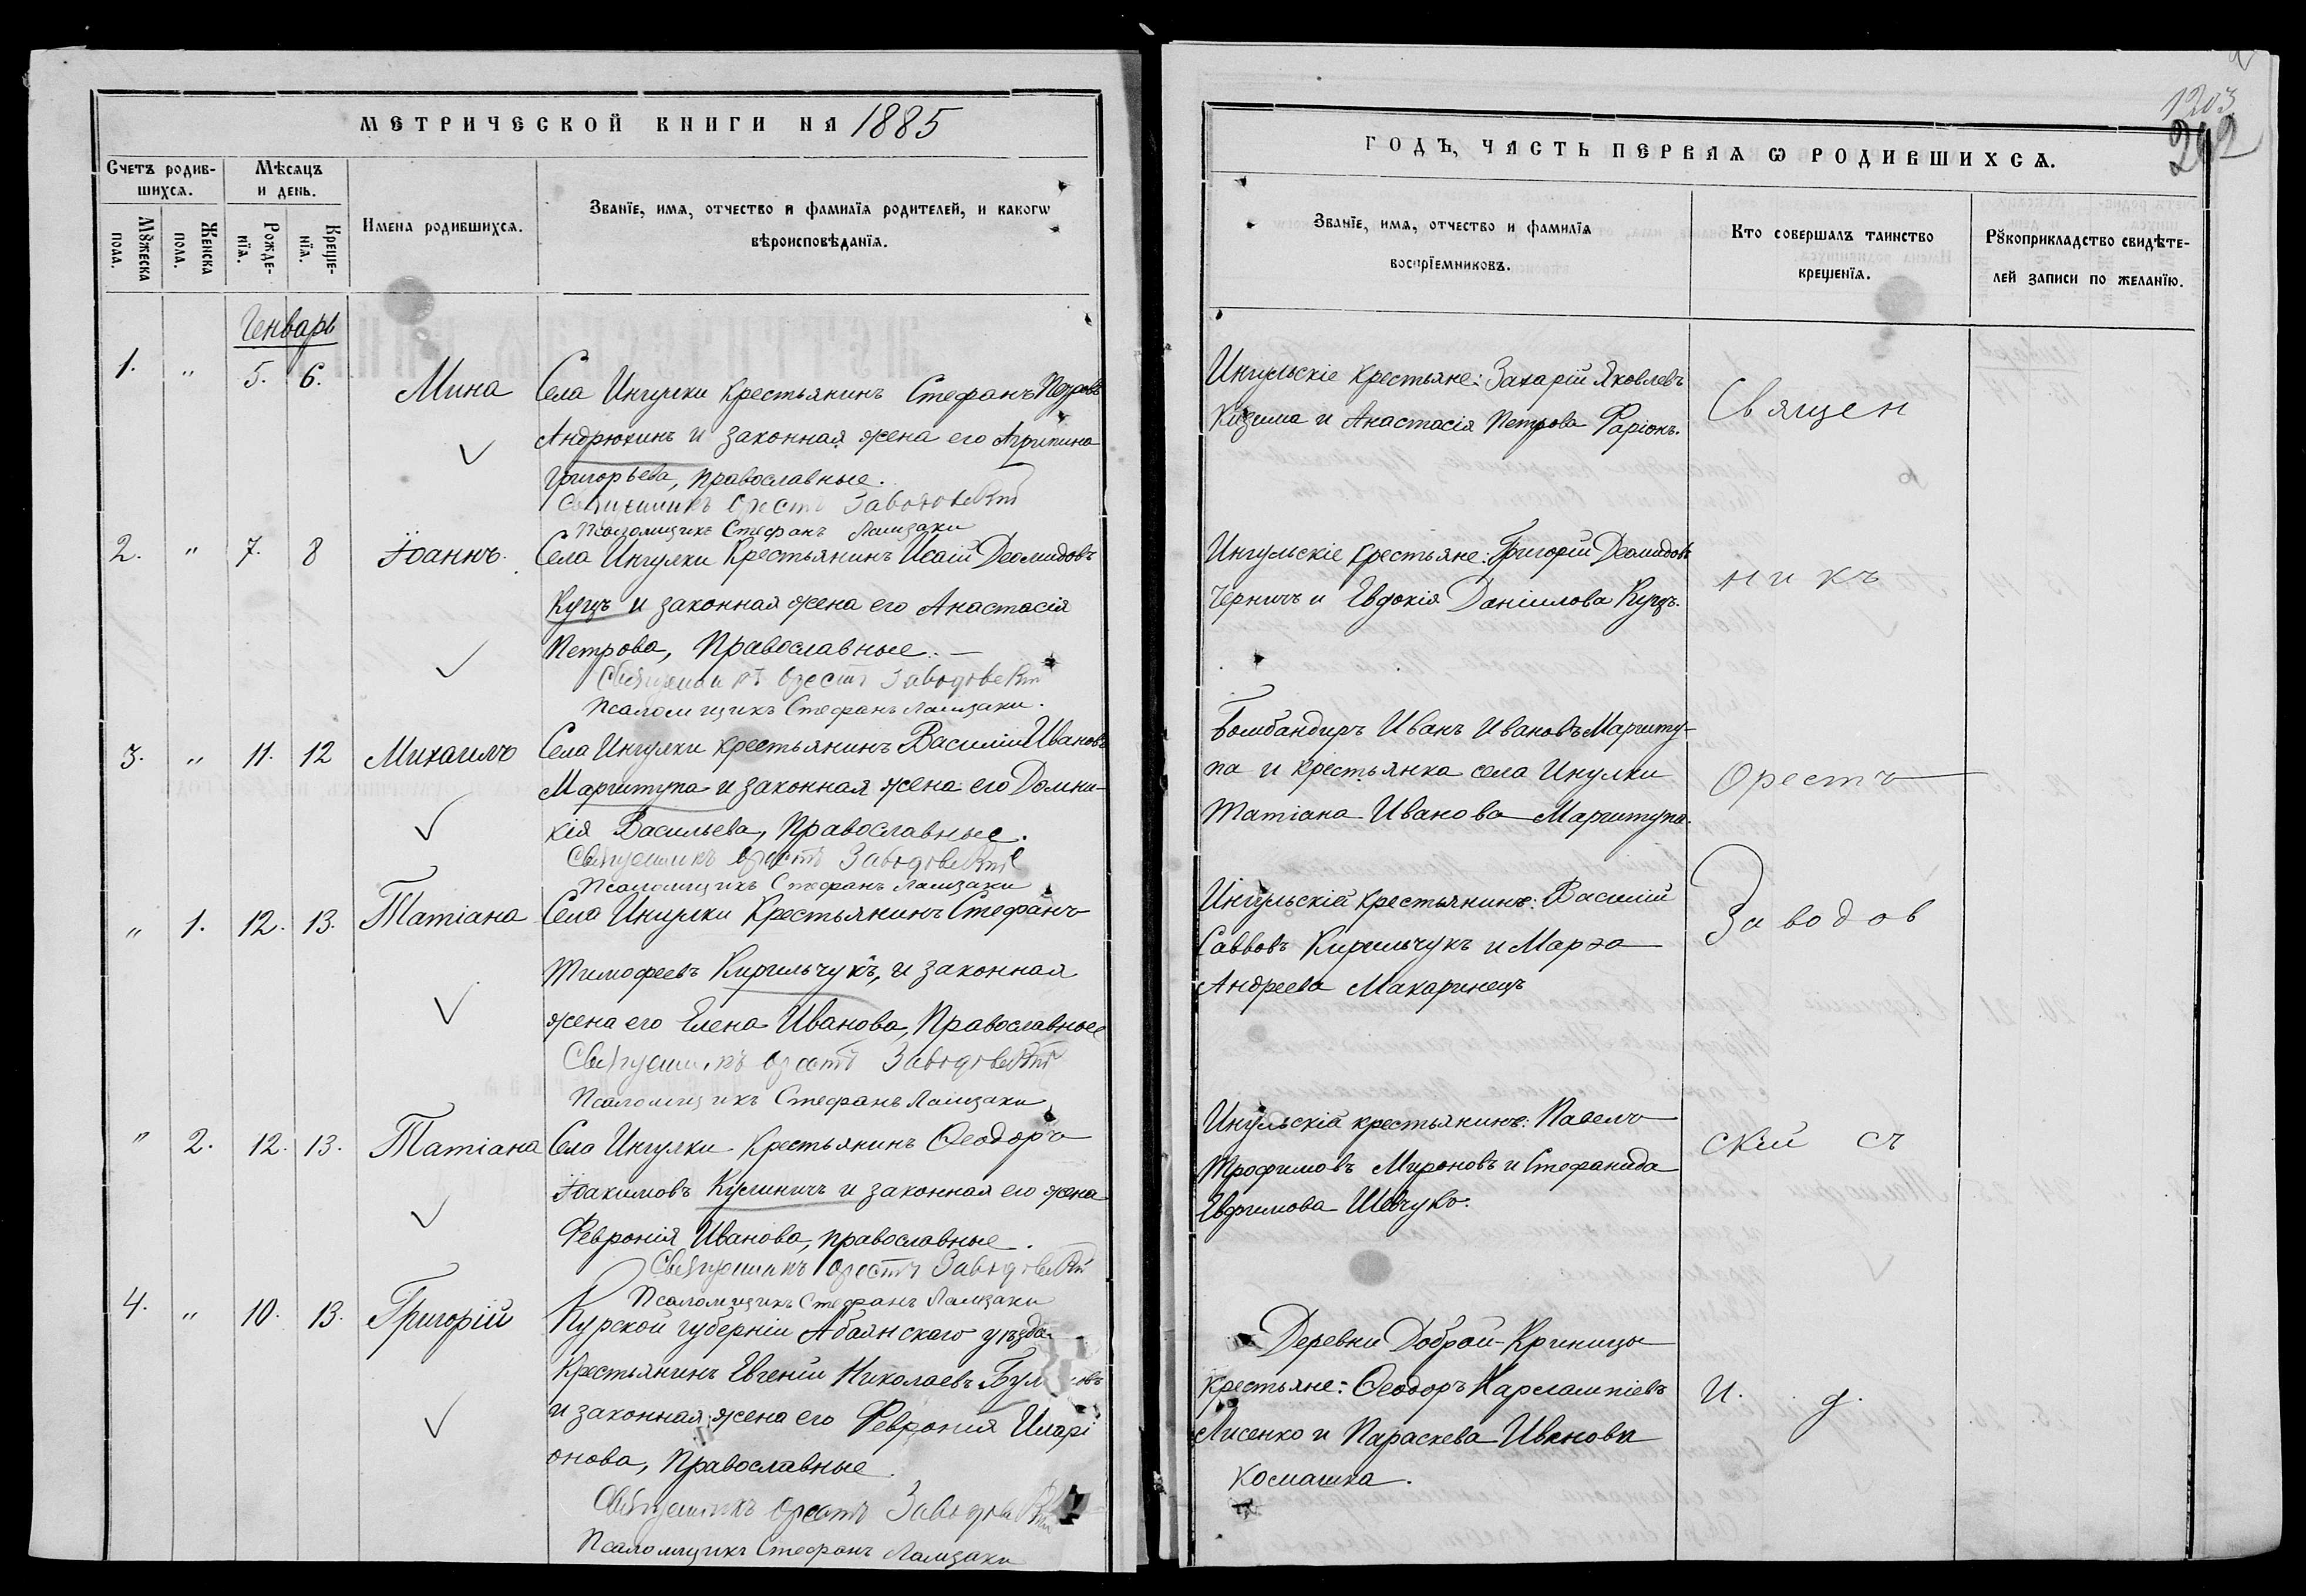 МЕТРИЧЕСКОЙ КНИГИ НА 1885
Счетъ родившихся.
Мѣсяцъ и день.
Имена родившихся.
Званїе, имя, отчество и фамилїя родителей, и какогѡ
вѣроисповѣданїя.
Мꙋжеска пола.
Женска пола.
Рожденїя.
Крещенїя.
Генварь
1. " 5. 6. Мина Села Ингулки крестьянинъ Стефанъ Петровъ
Андрюхинъ и законная жена его Агрипина
Григорьева, православные.
Священникъ Орестъ Заводовскій
Псаломщикъ Стефанъ Ламзаки
2. " 7. 8 Іоаннъ. Села Ингулки Крестьянинъ Исаій Деомидовъ
Куцъ и законная жена его Анастасія
Петрова, Православные. —
Священникъ Орестъ Заводовскій
Псаломщикъ Стефанъ Ламзаки.
3. " 11. 12 Михаилъ Села Ингулки крестьянинъ Василій Ивановъ
Маргитупа и законная жена его Домни-
кія Васильева, Православные.
Священникъ Орестъ Заводовскій
Псаломщикъ Стефанъ Ламзаки
" 1. 12. 13. Татіана Села Ингулки Крестьянинъ Стефанъ
Тимофеевъ Кирильчукъ, и законная
жена его Елена Иванова, Православные
Священникъ Орестъ Заводовскій
Псаломщикъ Стефанъ Ламзаки
" 2. 12. 13. Татіана Села Ингулки Крестьянинъ Ѳеодоръ
Іоакимовъ и законная его жена
Февронія Иванова, православные.
Священникъ Орестъ Заводовскій
Псаломщикъ Стефанъ Ламзаки
4. " 10. 13. Григорій Курской губерніи Абаянскаго уѣзда
Крестьянинъ Евгеній Николаевъ
и законная жена его Февронія Иларі
онова, Православные.
Священникъ Орестъ Заводовскій
Псаломщикъ Стефанъ Ламзаки
1203
ГОДЪ, ЧАСТЬ ПЕРВАЯ Ѡ РОДИВШИХСЯ.
Званїе, имя, отчество и фамилїя
воспрїемниковъ.
Кто совершалъ таинство
крещенїя.
Рꙋкоприкладство свидѣте-
лей записи по желанїю.
Ингульскіе крестьяне: Захарій Яковлевъ
Кизима и Анастасія Петрова Фаріонъ.
Священ
Ингульскіе крестьяне: Григорій Деомидовъ
Черничъ и Евдокія Даніилова Куцъ.
никъ
Бомбандиръ Иванъ Ивановъ Маргиту-
па и крестьянка села Инулки
Татіана Иванова Маргитупа.
Орестъ
Ингульскій крестьянинъ: Василій
Саввовъ Кирильчукъ и Марѳа
Андреева Макаринецъ
Заводов
Ингульскій крестьянинъ: Павелъ
Трофимовъ Мироновъ и Стефанида
Евфимова Шевчукъ.
скій съ
Деревни Доброй-Криницы
крестьяне: Ѳеодоръ Харлампіевъ
Лисенко и Параскева Иванова
Комашка.
И. д.